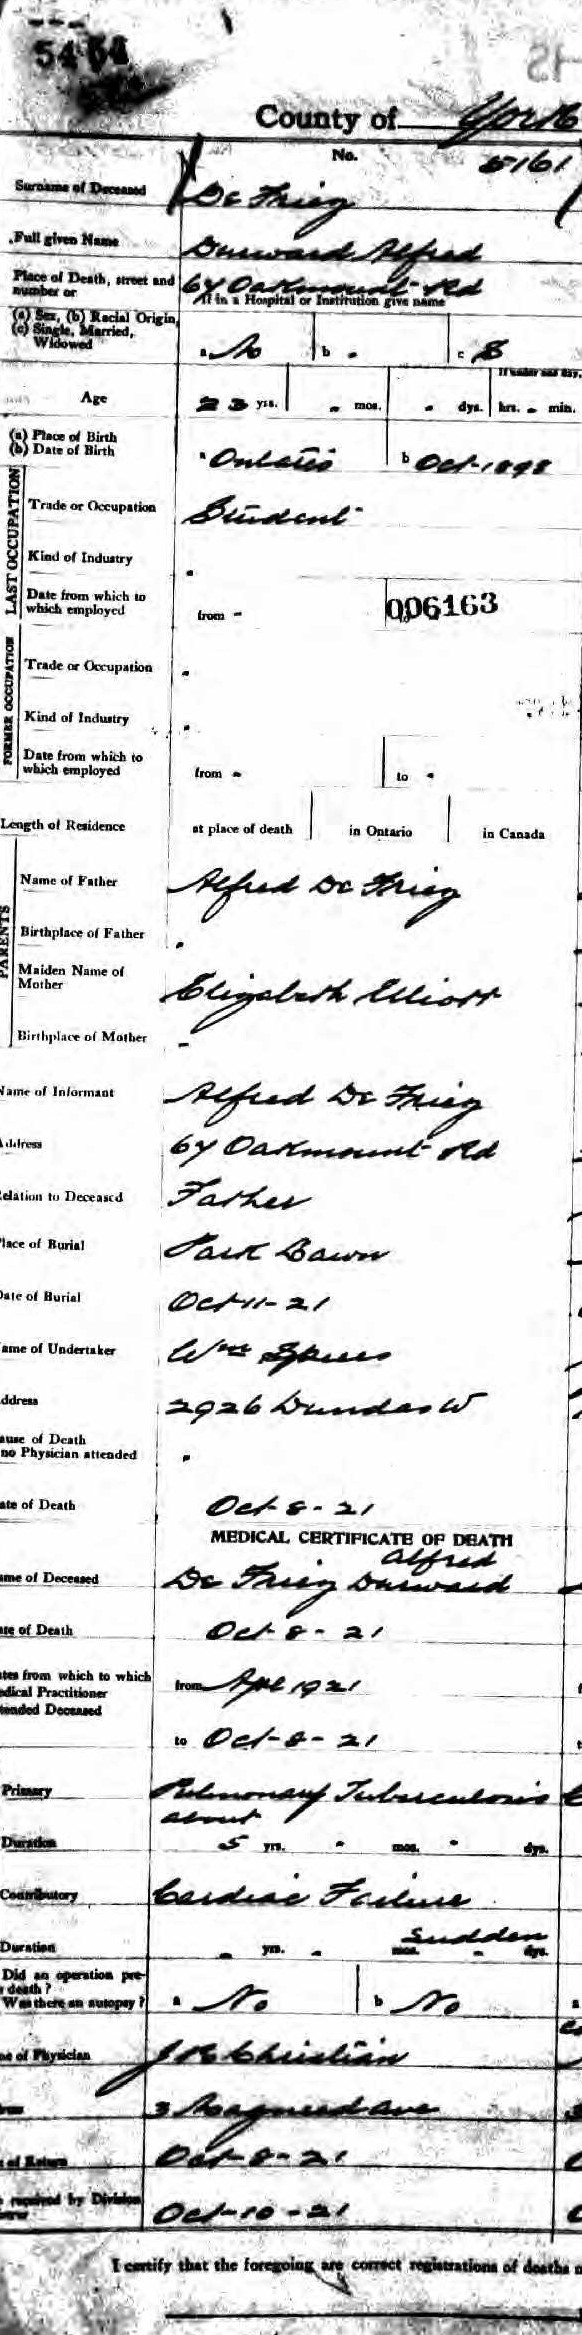 5454
County of York
No. 5161
Surname of Deceased De Frieg
Full given Name Durward Alfred
Place of Death, street and number or 67 Oakmount Rd
If in a Hospital or Institution give name
(a) Sex, (b) Racial Origin,
(c) Single, Married, Widowed
a M b - c S
If under one day,
Age 23 yrs. - mos. - dys. hrs. - min.
(a) Place of Birth
(b) Date of Birth
a Ontario b Oct-1898
LAST OCCUPATION
Trade or Occupation Student
Kind of Industry -
Date from which to
which employed from -
006163
FORMER OCCUPATION
Trade or Occupation -
Kind of Industry -
Date from which to
which employed from - to -
Length of Residence at place of death in Ontario in Canada
PARENTS
Name of Father Alfred De Frieg
Birthplace of Father -
Maiden Name of
Mother Elizabeth Elliott
Birthplace of Mother -
Name of Informant Alfred De Frieg
Address 67 Oakmount Rd
Relation to Deceased Father
Place of Burial Park Lawn
Date of Burial Oct 11-21
ame of Undertaker Wm Speers
ddress 2926 Dundas W
ause of Death
no Physician attended -
ate of Death Oct-8-21
MEDICAL CERTIFICATE OF DEATH
Alfred
ame of Deceased De Frieg Durward
ate of Death Oct-8-21
ates from which to which
edical Practitioner
ttended Deceased
from Apl 1921
to Oct-8-21
Primary Pulmonary Tuberculosis
about
Duration 5 yrs. - mos. - dys.
Contributory Cardiac Failure
Sudden
Duration - yrs. - mos. - dys.
Did an operation pre-
death?
Was there an autopsy?
a No b No
e of Physician J R Christian
3 Ave
of Return Oct-8-21
received by Division Oct-10-21
I certify that the foregoing are correct registrations of deaths